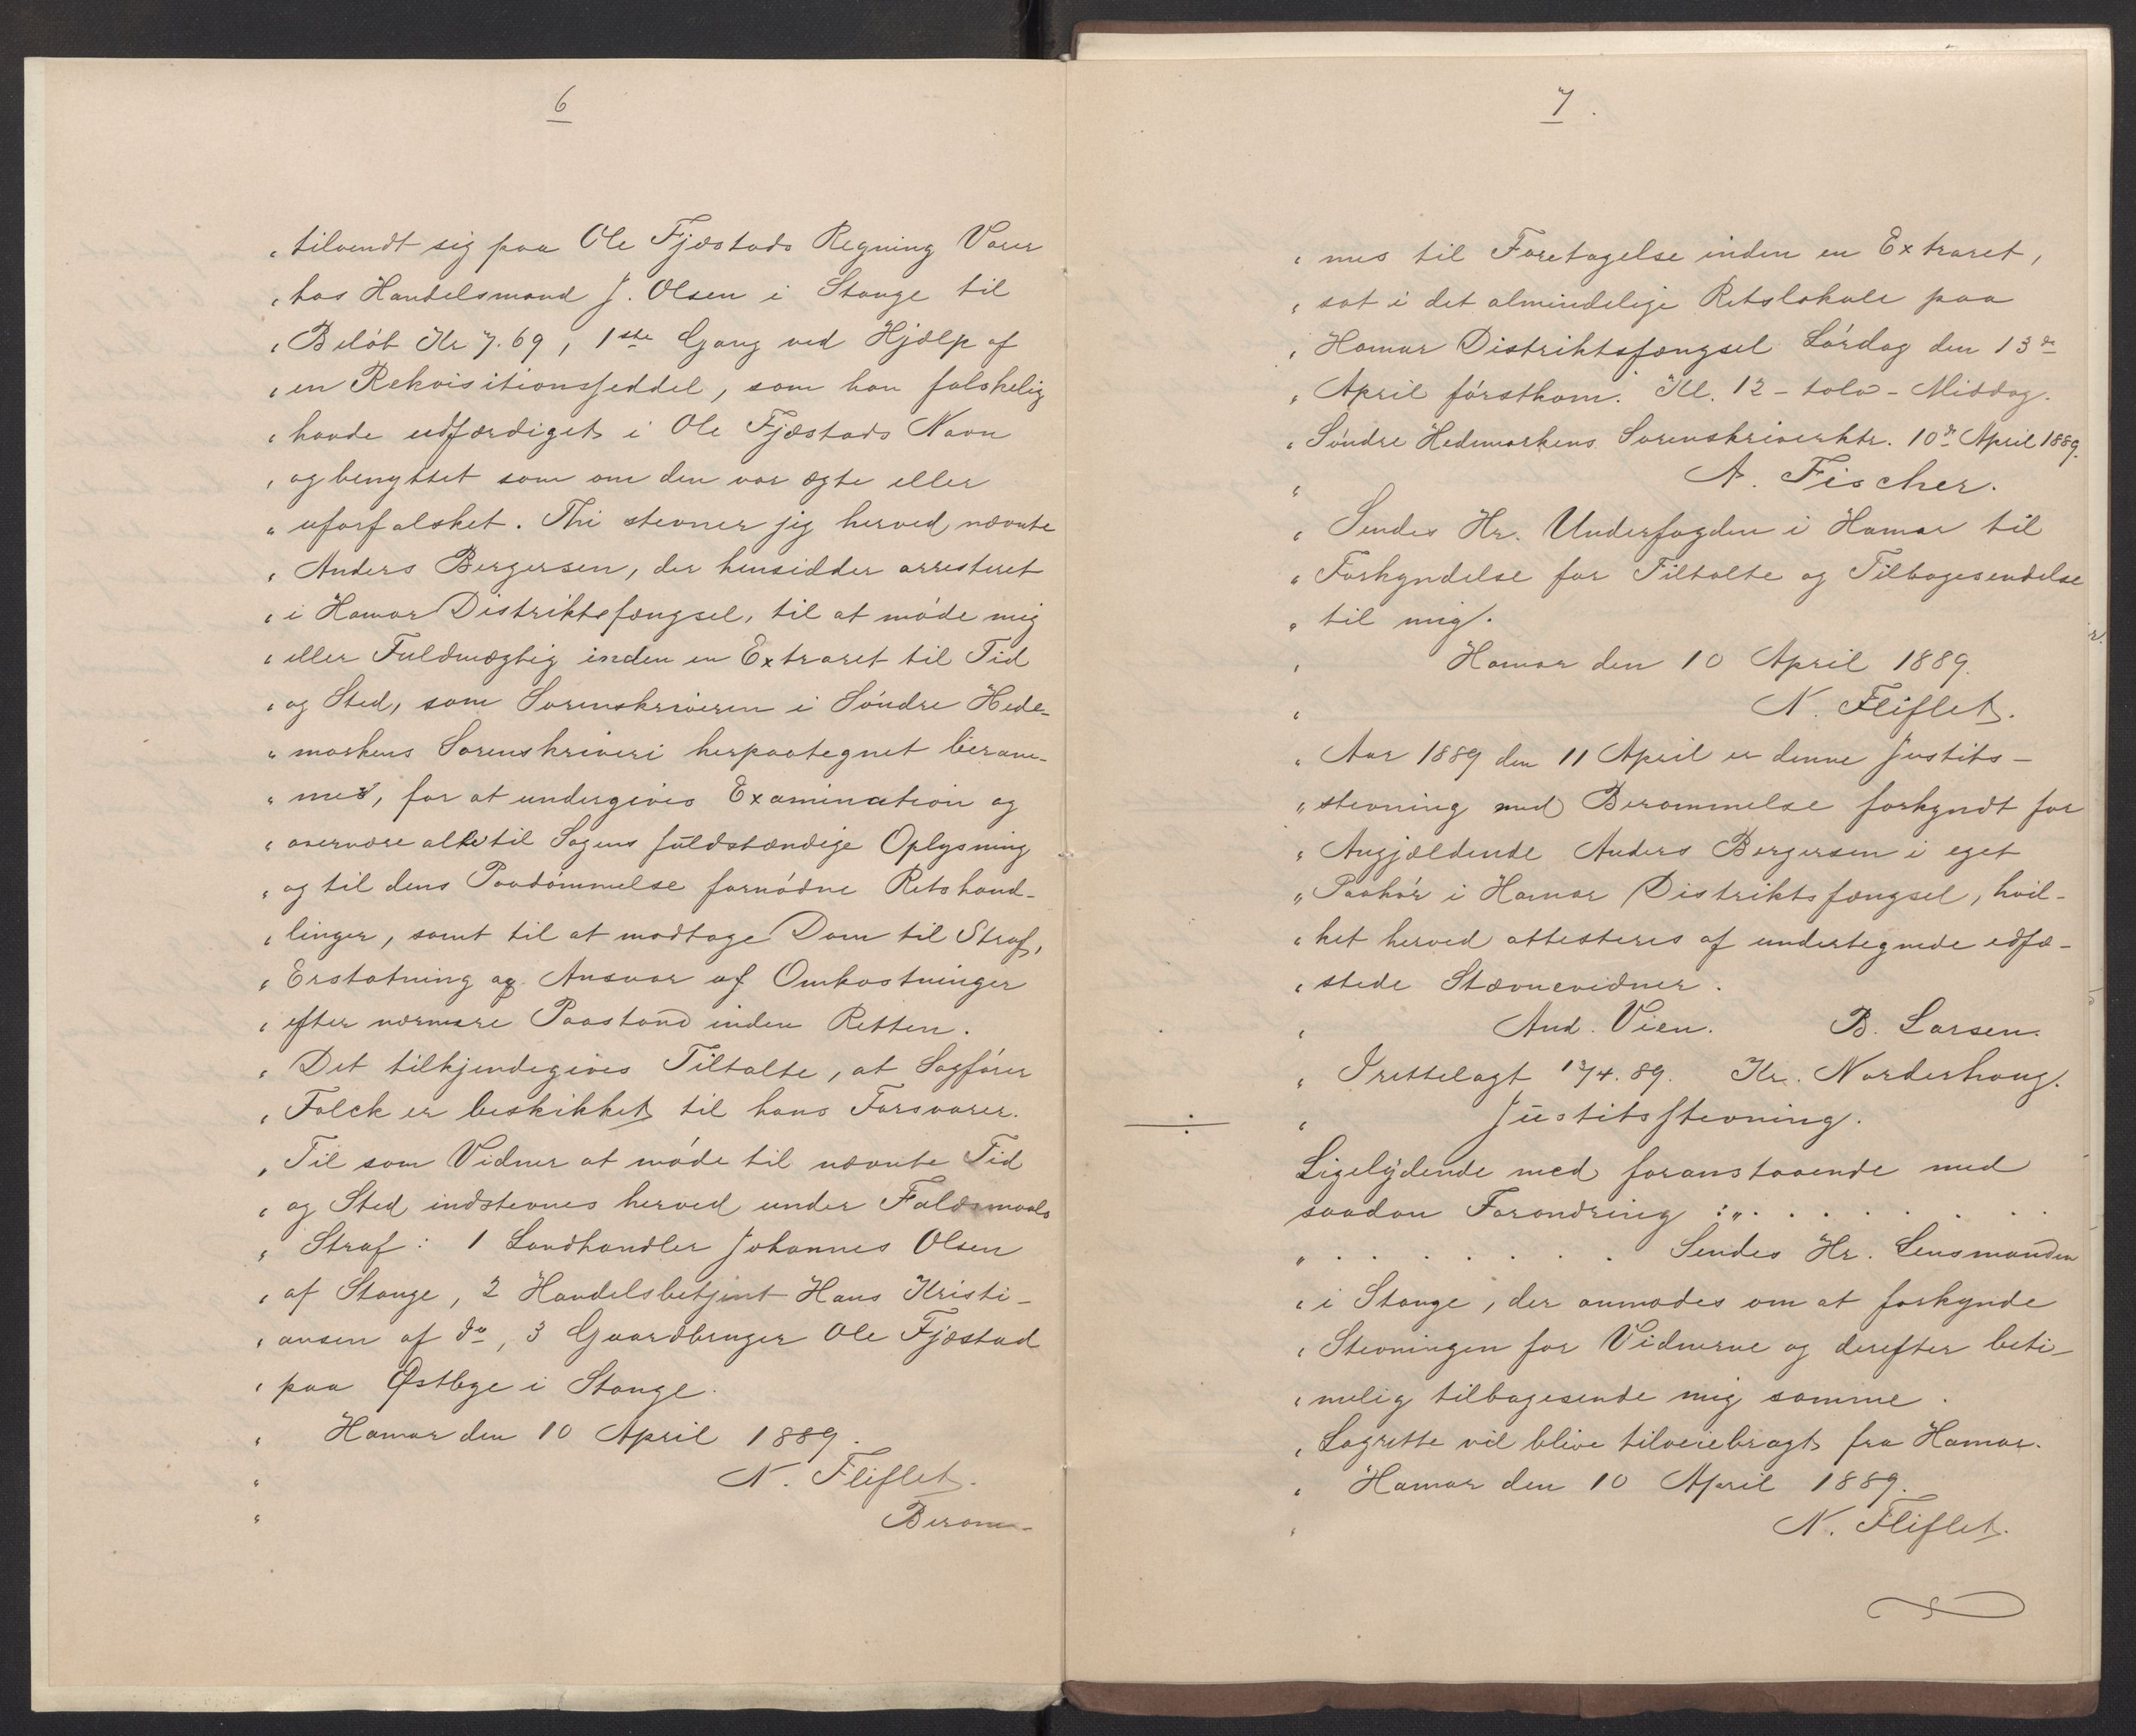 6
„ tilvendt sig paa Ole Fjæstads Regning Varer
„ hos Handelsmand J. Olsen i Stange til
„ Beløb Kr 7.69, 1ste Gang ved Hjælp af
„ en Rekvisitionsseddel, som han falskelig
„ havde udfærdiget i Ole Fjæstads Navn
„ og benyttet som om den var ægte eller
„ uforfalsket. Thi stevner jeg herved nævnte
„ Anders Bergersen, der hensidder arresteret
„ i Hamar Distriktsfængsel, til at møde mig
„ eller Fuldmægtig inden en Extraret til Tid
„ og Sted, som Sorenskriveren i Søndre Hede-
„ markens Sorenskriveri herpaategnet beram-
„ mer, for at undergives Examination og
„ overvære alle til Sagens fuldstændige Oplysning
„ og til dens Paadømmelse fornødne Retshand-
„ linger, samt til at modtage Dom til Straf,
„ Erstatning og Ansvar af Omkostninger
„ efter nærmere Paastand inden Retten.
„ Det tilkjendegives Tiltalte, at Sagfører
„ Falck er beskikket til hans Forsvarer.
„ Til som Vidner at møde til nævnte Tid
„ og Sted indstevnes herved under Faldsmaals
„ Straf: 1 Landhandler Johannes Olsen
„ af Stange, 2 Handelsbetjent Hans Kristi-
„ ansen af do, 3 Gaardbruger Ole Fjæstad
„ paa Østbye i Stange.
„ Hamar den 10 April 1889.
„ N. Fliflet.
„ Beram-
7.
„ mes til Foretagelse inden en Extraret,
„ sat i det almindelige Retslokale paa
„ Hamar Distriktsfængsel Lørdag den 13de
„ April førstkom. Kl. 12 - tolv - Middag.
„ Søndre Hedemarkens Sorenskriverktr. 10de April 1889.
„ A. Fischer.
„ Sendes Hr. Underfogden i Hamar til
„ Forkyndelse for Tiltalte og Tilbagesendelse
„ til mig.
„ Hamar den 10 April 1889.
„ N. Fliflet.
„ Aar 1889 den 11 April er denne Justits-
„ stevning med Berammelse forkyndt for
„ Angjældende Anders Bergersen i eget
„ Paahør i Hamar Distriktsfængsel, hvil-
„ ket herved attesteres af undertegnede edfæ-
„ stede Stævnevidner.
„ And. Vien. B. Larsen.
„ Irettelagt 13/4. 89. Kr. Norderhoug.
÷ „ Justitsstevning.
Ligelydende med foranstaaende med
saadan Forandring : „ . . . . . . . .
„ . . . . . . . Sendes Hr. Lensmanden
„ i Stange, der anmodes om at forkynde
„ Stevningen for Vidnerne og derefter beti-
„ melig tilbagesende mig samme.
„ Lagrette vil blive tilveiebragt fra Hamar.
„ Hamar den 10 April 1889.
„ N. Fliflet.